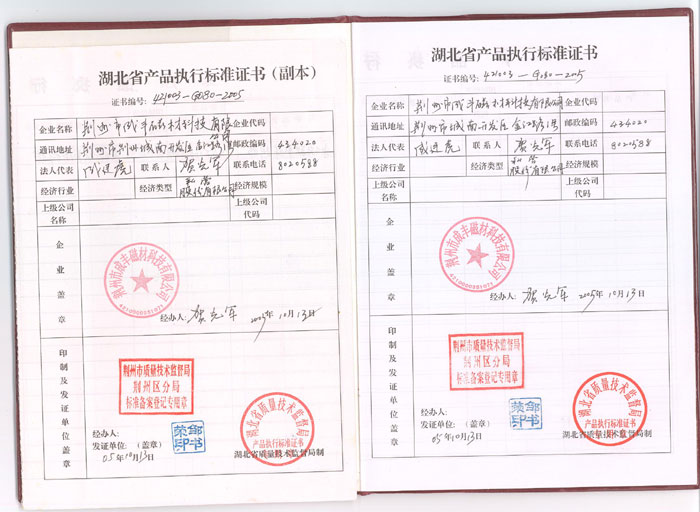 湖北省产品执行标准证书（副本）
证书编号: 421003-G080-2005
企业名称 荆州市成丰磁材科技有限公司 企业代码
通讯地址 荆州市荆州城南开发区金江路 邮政编码 434020
法人代表 成进虎 联系人 贺克军 联系电话 8020588
经济行业 经济类型 私营股份有限公司 经济规模
上级公司名称 上级公司代码
企业盖章
荆州市成丰磁材科技有限公司
经办人: 贺克军 2005年10月13日
印制及发证单位盖章
荆州市质量技术监督局
荆州区分局
标准备案登记专用章
经办人:
发证单位: （盖章）
05年10月13日
湖北省质量技术监督局
产品执行标准证书
湖北省质量技术监督局制
湖北省产品执行标准证书
证书编号: 421003-G080-2005
企业名称 荆州市成丰磁材科技有限公司 企业代码
通讯地址 荆州市城南开发区金江路 邮政编码 434020
法人代表 成进虎 联系人 贺克军 联系电话 8020588
经济行业 经济类型 私营股份有限公司 经济规模
上级公司名称 上级公司代码
企业盖章
荆州市成丰磁材科技有限公司
经办人: 贺克军 2005年10月13日
印制及发证单位盖章
荆州市质量技术监督局
荆州区分局
标准备案登记专用章
经办人:
发证单位: （盖章）
05年10月13日
湖北省质量技术监督局
产品执行标准证书
湖北省质量技术监督局制